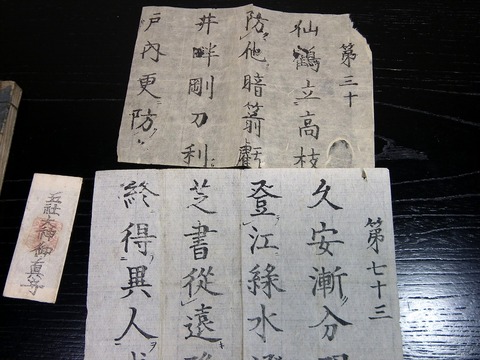 第三十
仙鶴立高枝
防他暗箭虧
井畔剛刀利
戸内更防
第七十三
久安漸分
登江緑水
芝書從遠
終得異人
大神御真